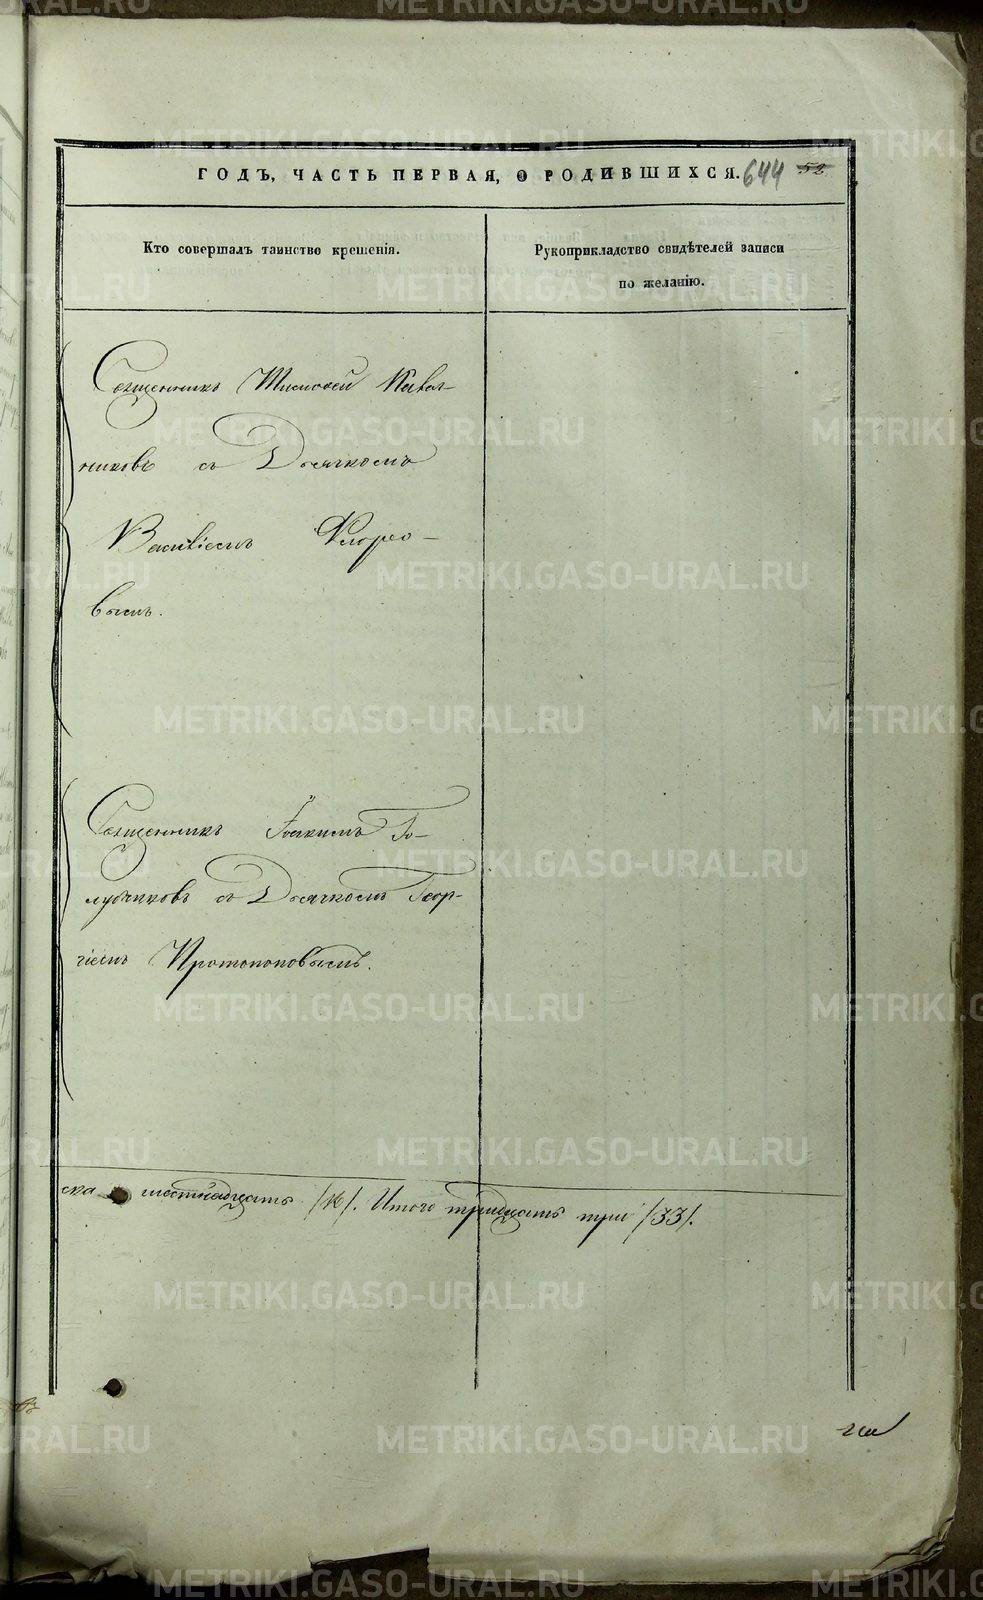 ГОДЪ, ЧАСТЬ ПЕРВАЯ, О РОДИВШИХСЯ. 644 52
Кто совершалъ таинство крещенія.
Рукоприкладство свидѣтелей записи
по желанію.
Священникъ Тимофей Кавал-
никовъ съ Дьячкомъ
Василіемъ Флоро-
вымъ.
Священникъ Іоакимъ Го-
лубчиковъ съ Дьячкомъ Геор-
гіемъ Протопоповымъ.
ска шестнадцать /16/. Итого тридцать три /33/.
METRIKI.GASO-URAL.RU